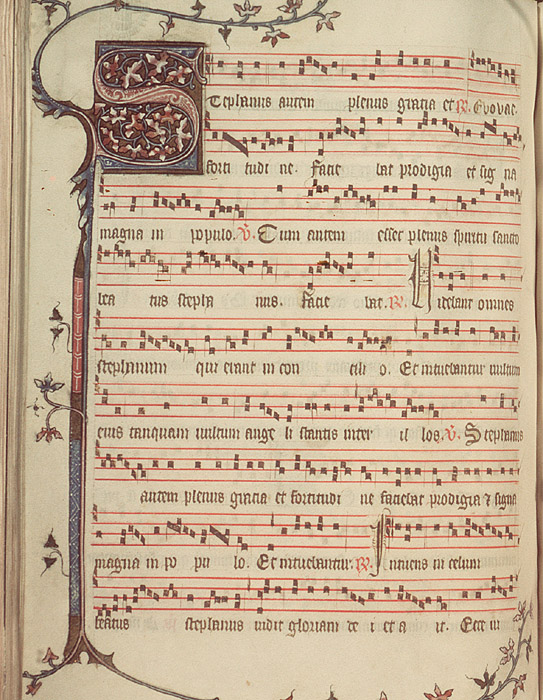 Stephanus autem plenus gratia et R. Evovae.
forti tudi ne. Facie bat prodigia et sig na
magna in populo. V. Cum autem esset plenus spiritu sancto
bea tus stepha nus. Facie bat. R. Videbant omnes
stephanum qui erant in con cili o. Et intuebantur vultum
eius tanquam vultum ange li stantis inter il los. V. Stephanus
autem plenus gratia et fortitudi ne faciebat prodigia & signa
magna in po pu lo. Et intuebantur. R. Intuens in celum
beatus stephanus vidit gloriam de i et a it. Ecce vi